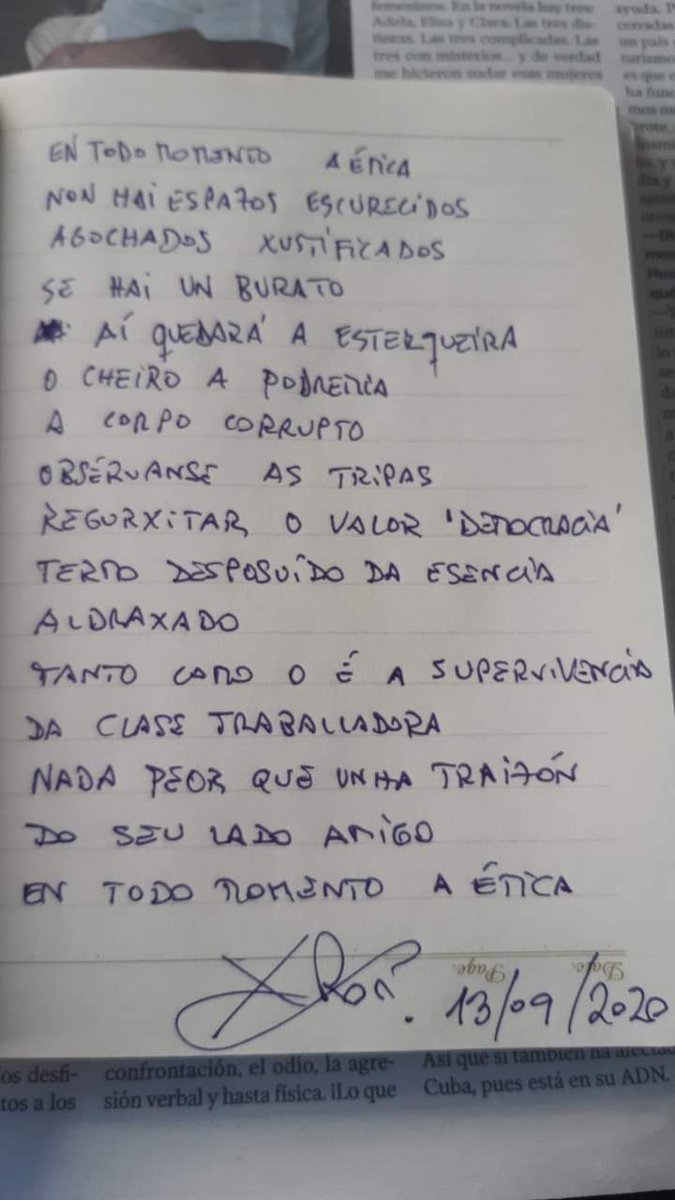 femeninos. En la novela hay tres
Adela, Elisa y Clara. Las tres dis-
tintas. Las tres complicadas. Las
tres con misterios... y de verdad
me hicieron sudar esas mujeres
ayuda.
cerradas
un país
turismo
es que
ha func
mos m
EN TODO MOMENTO A ÉTICA
NON HAI ESPAZOS ESCURECIDOS
AGOCHADOS XUSTIFICADOS
SE HAI UN BURATO
AÍ QUEDARÁ A ESTERQUEIRA
O CHEIRO A PODREMIA
A CORPO CORRUPTO
OBSÉRVANSE AS TRIPAS
REGURXITAR O VALOR 'DEMOCRACIA'
TERMO DESPOSUÍDO DA ESENCIA
ALDRAXADO
TANTO COMO O É A SUPERVIVENCIA
DA CLASE TRABALLADORA
NADA PEOR QUE UNHA TRAIZÓN
DO SEU LADO AMIGO
EN TODO MOMENTO A ÉTICA
Page. Date.
13/09/2020
os desfi-
tos a los
confrontación, el odio, la agre-
sión verbal y hasta física. ¡Lo que
Así que si también ha afectad
Cuba, pues está en su ADN.